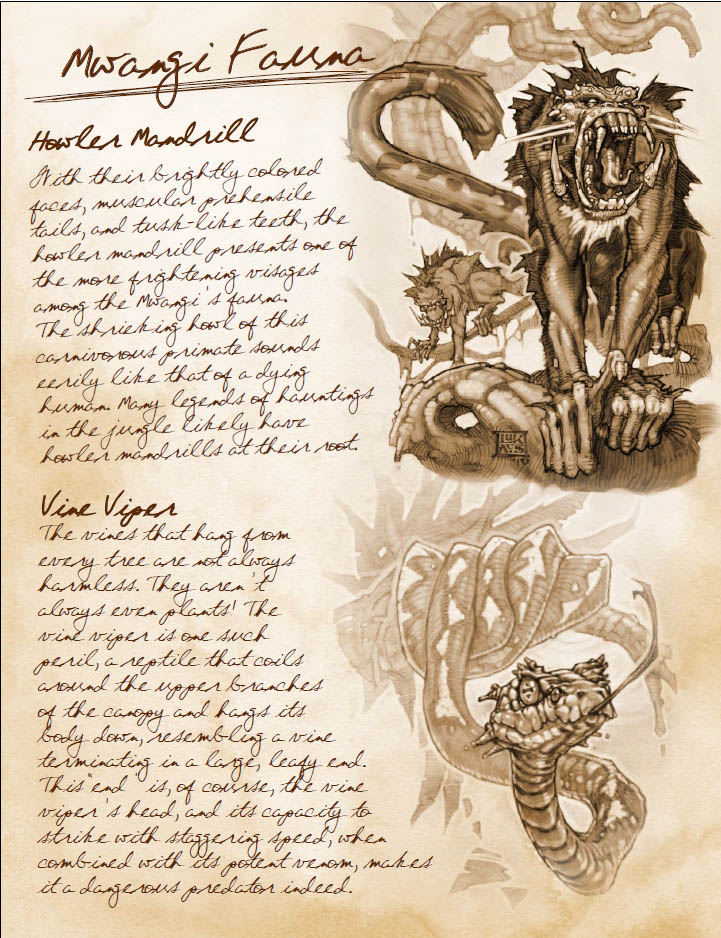 Mwangi Fauna
Howler Mandrill
With their brightly colored
faces, muscular prehensile
tails, and tusk-like teeth, the
howler mandrill presents one of
the more frightening visages
among the Mwangi's fauna.
The shrieking howl of this
carnivorous primate sounds
eerily like that of a dying
human. Many legends of hauntings
in the jungle likely have
howler mandrills at their root.
Vine Viper
The vines that hang from
every tree are not always
harmless. They aren't
always even plants! The
vine viper is one such
peril, a reptile that coils
around the upper branches
of the canopy and hangs its
body down, resembling a vine
terminating in a large, leafy end.
This "end" is, of course, the vine
viper's head, and its capacity to
strike with staggering speed, when
combined with its potent venom, makes
it a dangerous predator indeed.